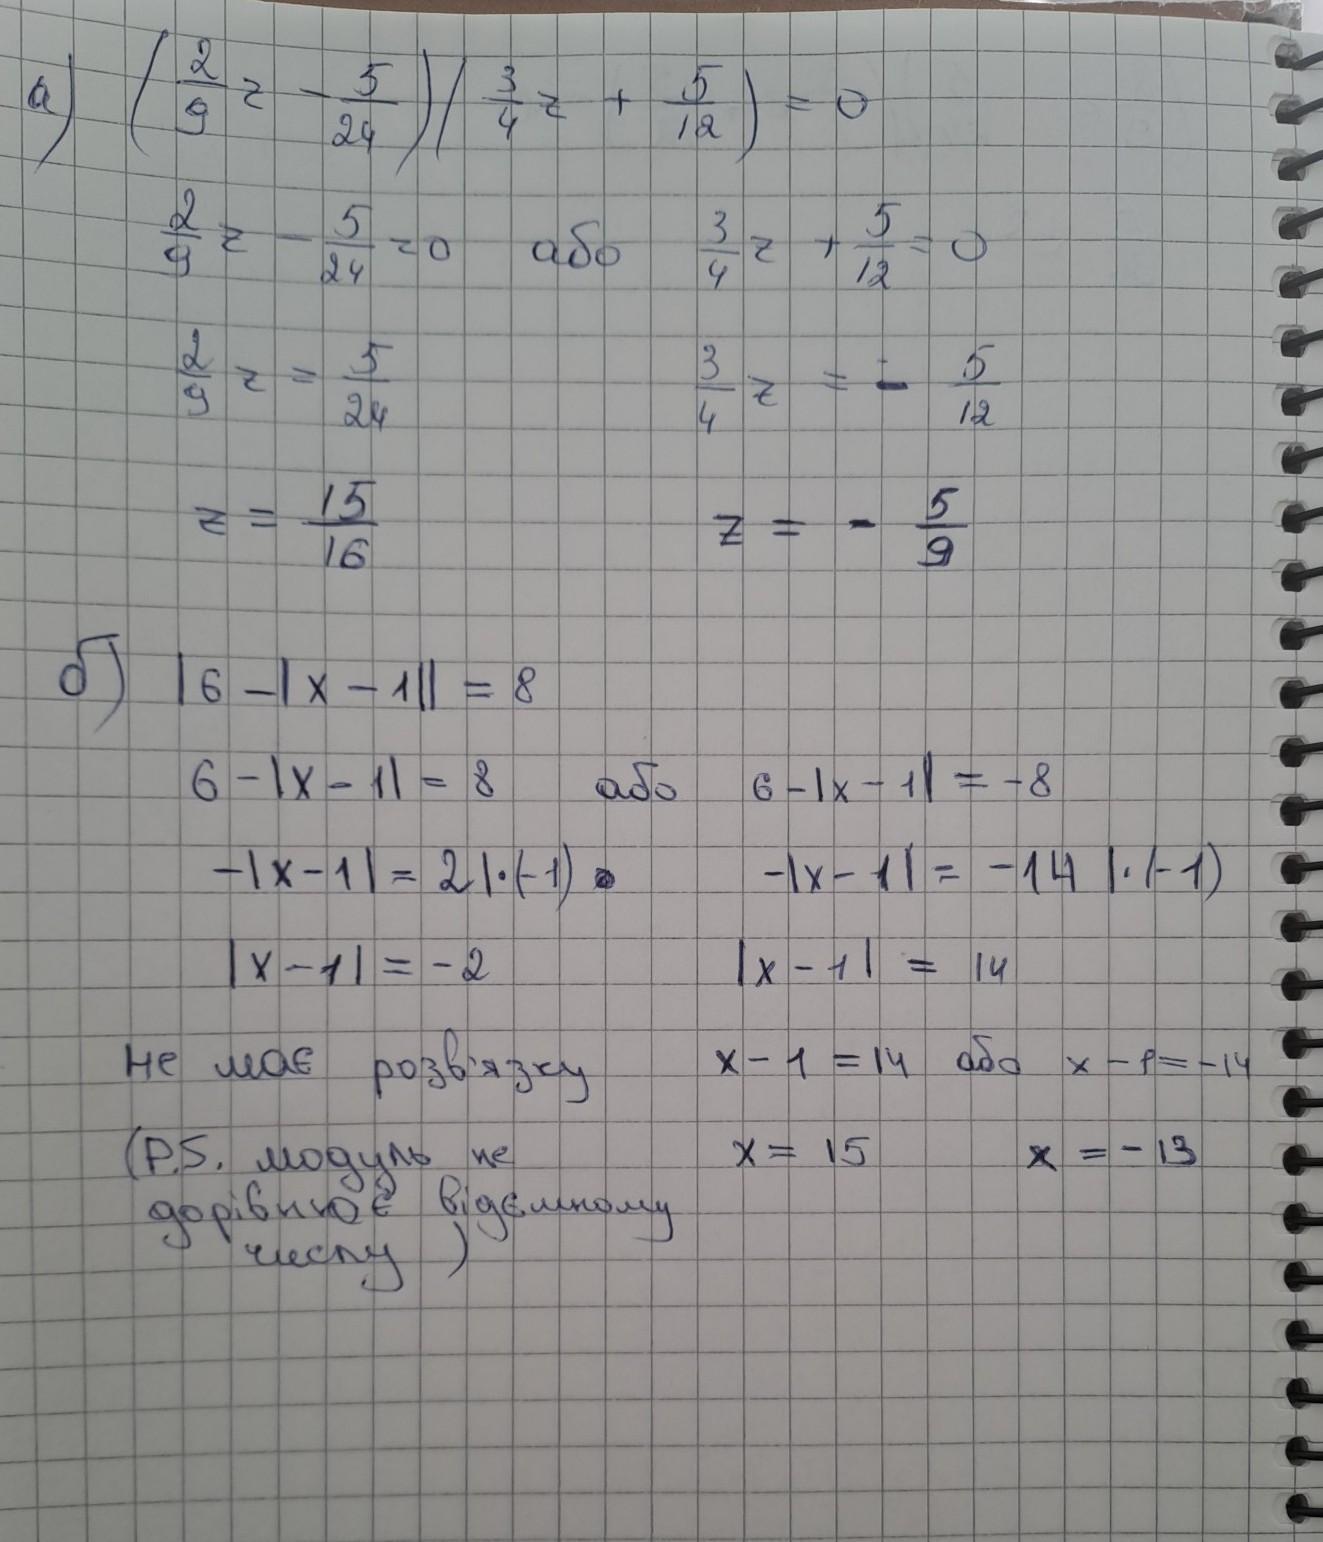 а) (2/9 z - 5/24)(3/4 z + 5/12) = 0
2/9 z - 5/24 = 0 або 3/4 z + 5/12 = 0
2/9 z = 5/24 3/4 z = - 5/12
z = 15/16 z = - 5/9
б) |6 - |x - 1|| = 8
6 - |x - 1| = 8 або 6 - |x - 1| = -8
-|x - 1| = 2 |·(-1) -|x - 1| = -14 |·(-1)
|x - 1| = -2 |x - 1| = 14
не має розв'язку x - 1 = 14 або x - 1 = -14
(P.S. модуль не x = 15 x = -13
дорівнює відємному
числу)